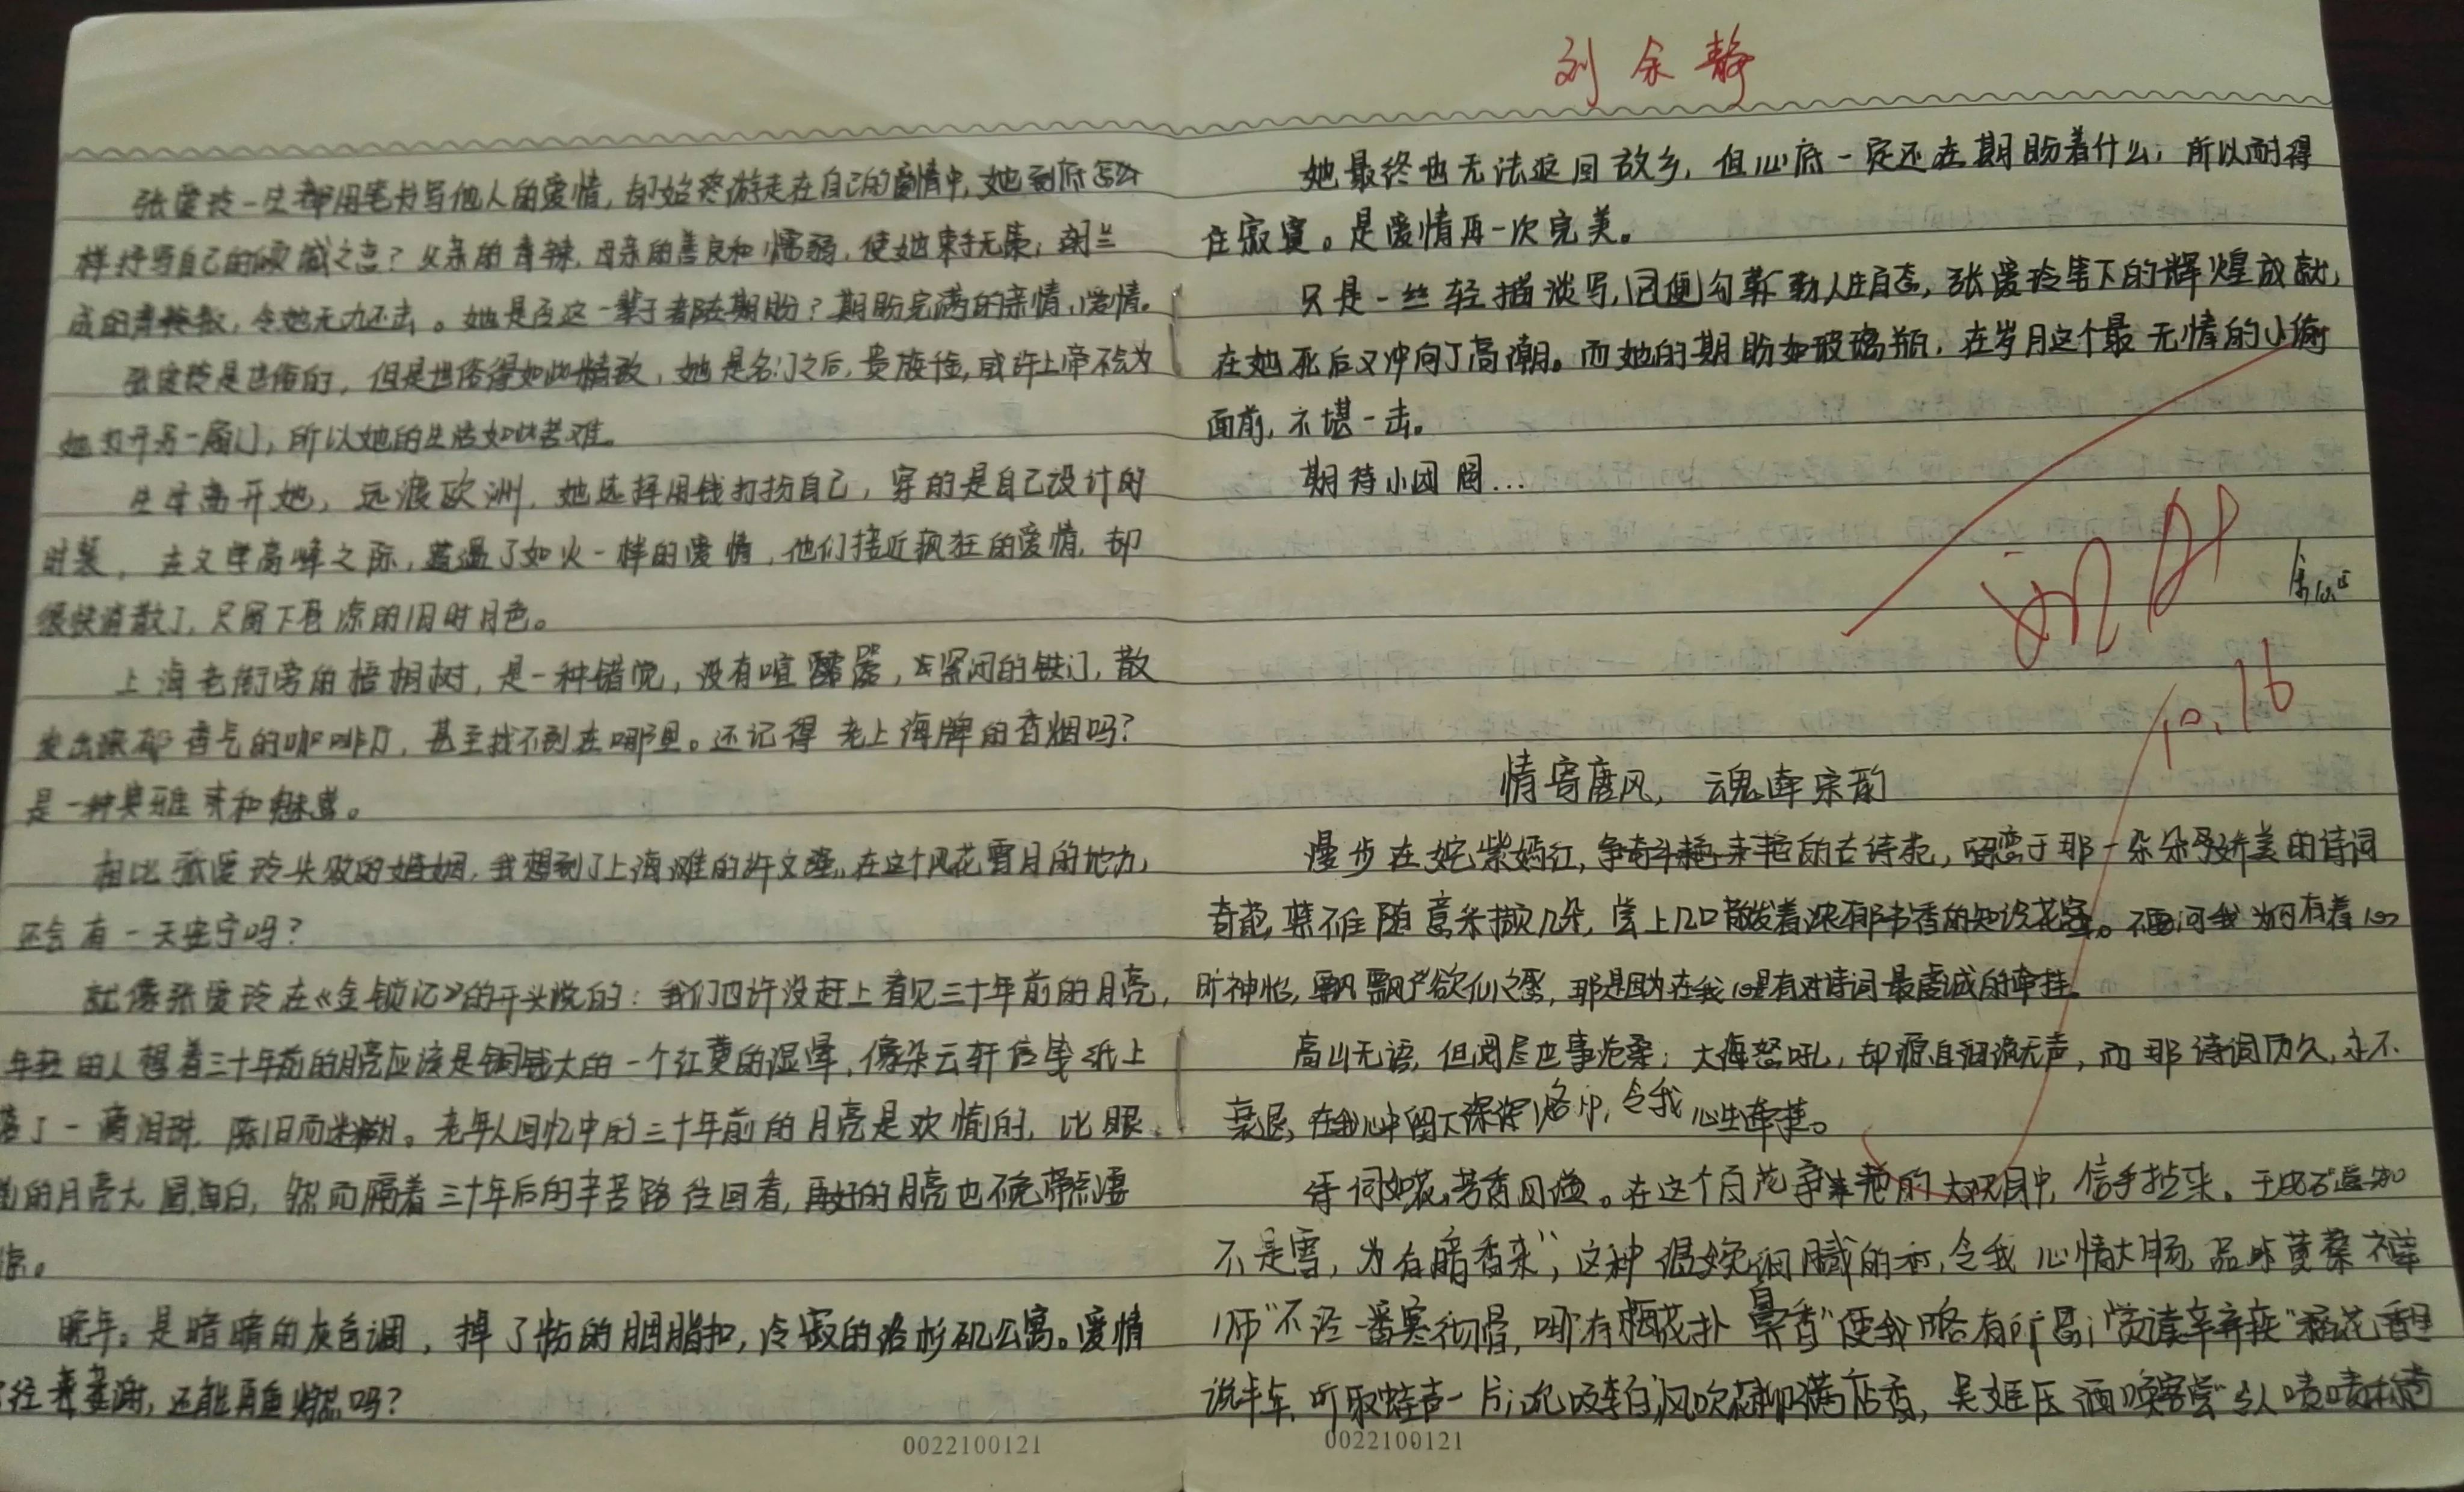 张爱玲一生都用笔书写他人的爱情,却始终游走在自己的爱情中,她到底怎么
样抒写自己的之言?父亲的毒辣,母亲的善良和懦弱,使她束手无策,胡兰
成的,令她无力还击。她是否这一辈子都在期盼?期盼完满的亲情、爱情。
张爱玲是世俗的,但是世俗得如此精致,她是名门之后,贵族千金,或许上帝不会为
她打开另一扇门,所以她的生活如此苦难。
生母离开她,远渡欧洲,她选择用钱打扮自己,穿的是自己设计的
时装,在文学高峰之际,遭遇了如火一样的爱情,他们接近疯狂的爱情,却
很快消散了,只留下苍凉的旧时月色。
上海老街旁的梧桐树,是一种错觉,没有喧嚣,紧闭的铁门,散
发出浓郁香气的咖啡厅,甚至找不到在哪里。还记得老上海牌的香烟吗?
是一种典雅和魅惑。
相比张爱玲失败的婚姻,我想到了上海滩的许文强,在这个风花雪月的地方,
还会有一天安宁吗?
就像张爱玲在《金锁记》的开头说的:我们也许没赶上看见三十年前的月亮,
年轻的人想着三十年前的月亮应该是铜钱大的一个红黄的湿晕,像朵云轩信笺纸上
落了一滴泪珠,陈旧而迷糊。老年人回忆中的三十年前的月亮是欢愉的,比眼
前的月亮大、圆、白,然而隔着三十年后的辛苦路往回看,再好的月亮也不免带点凄
凉。
晚年。是暗暗的灰色调,掉了的胭脂扣,冷寂的洛杉矶公寓。爱情
已经凋谢,还能再重燃吗?
刘余静
她最终也无法返回故乡,但心底一定还在期盼着什么,所以耐得
住寂寞。是爱情再一次完美。
只是一丝轻描淡写,便勾勒人生百态,张爱玲笔下的辉煌成就,
在她死后又冲向了高潮。而她的期盼如玻璃瓶,在岁月这个最无情的小偷
面前,不堪一击。
期待小团圆…
10.16
情寄唐风,魂牵宋韵
漫步在姹紫嫣红,争奇斗艳的古诗苑,留恋于那一朵朵娇美的诗词
奇葩,禁不住随意采撷几朵,尝上几口散发着浓郁书香的知识花蜜。不要问我为何有着心
旷神怡,飘飘欲仙之感,那是因为在我心里有对诗词最虔诚的牵挂。
高山无语,但阅尽世事沧桑;大海怒吼,却源自细流无声,而那诗词历久,亦不
衰退,在我心中留下深深烙印,令我心生牵挂。
诗词如花,芳香四溢。在这个百花争艳的大花园中,信手拈来。于是“遥知
不是雪,为有暗香来”,这种温婉细腻的香,令我心情大肠,品味黄檗禅
师“不经一番寒彻骨,哪有梅花扑鼻香”使我略有所悟;赏读辛弃疾“稻花香里
说丰年,听取蛙声一片;吮吸李白“风吹柳花满店香,吴姬压酒唤客尝”令人啧啧称赞
0022100121
0022100121